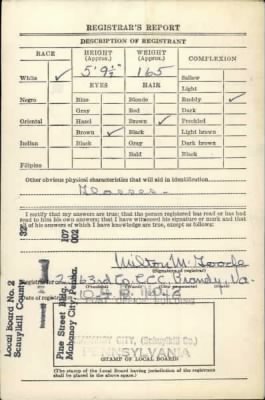 REGISTRAR'S REPORT
DESCRIPTION OF REGISTRANT
RACE
HEIGHT
(Approx.)
WEIGHT
(Approx.)
COMPLEXION
White ✓
5' 9½"
165
Sallow
Light
EYES
HAIR
Negro
Blue
Blonde
Ruddy ✓
Gray
Red
Dark
Oriental
Hazel
Brown ✓
Freckled
Brown ✓
Black
Light brown
Indian
Black
Gray
Dark brown
Bald
Black
Filipino
Other obvious physical characteristics that will aid in identification
I certify that my answers are true; that the person registered has read or has had
read to him his own answers; that I have witnessed his signature or mark and that
all of his answers of which I have knowledge are true, except as follows:
Milton M.
(Signature of registrar)
Co. C.C.C. Brandy, Va.
Date of registration
Local Board No. 2
Schuylkill County
32
107
002
Pine Street Bldg.
Mahanoy City, Penna.
MAHANOY CITY, (Schuylkill Co.)
PENNSYLVANIA
STAMP OF LOCAL BOARD
(The stamp of the Local Board having jurisdiction of the registrant
shall be placed in the above space.)